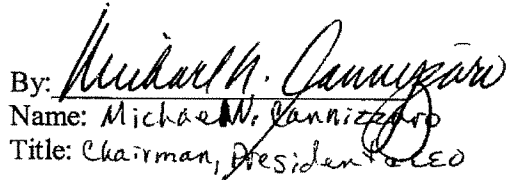 By: Michael N. Cannizzaro
Name: Michael N. Cannizzaro
Title: Chairman, President & CEO